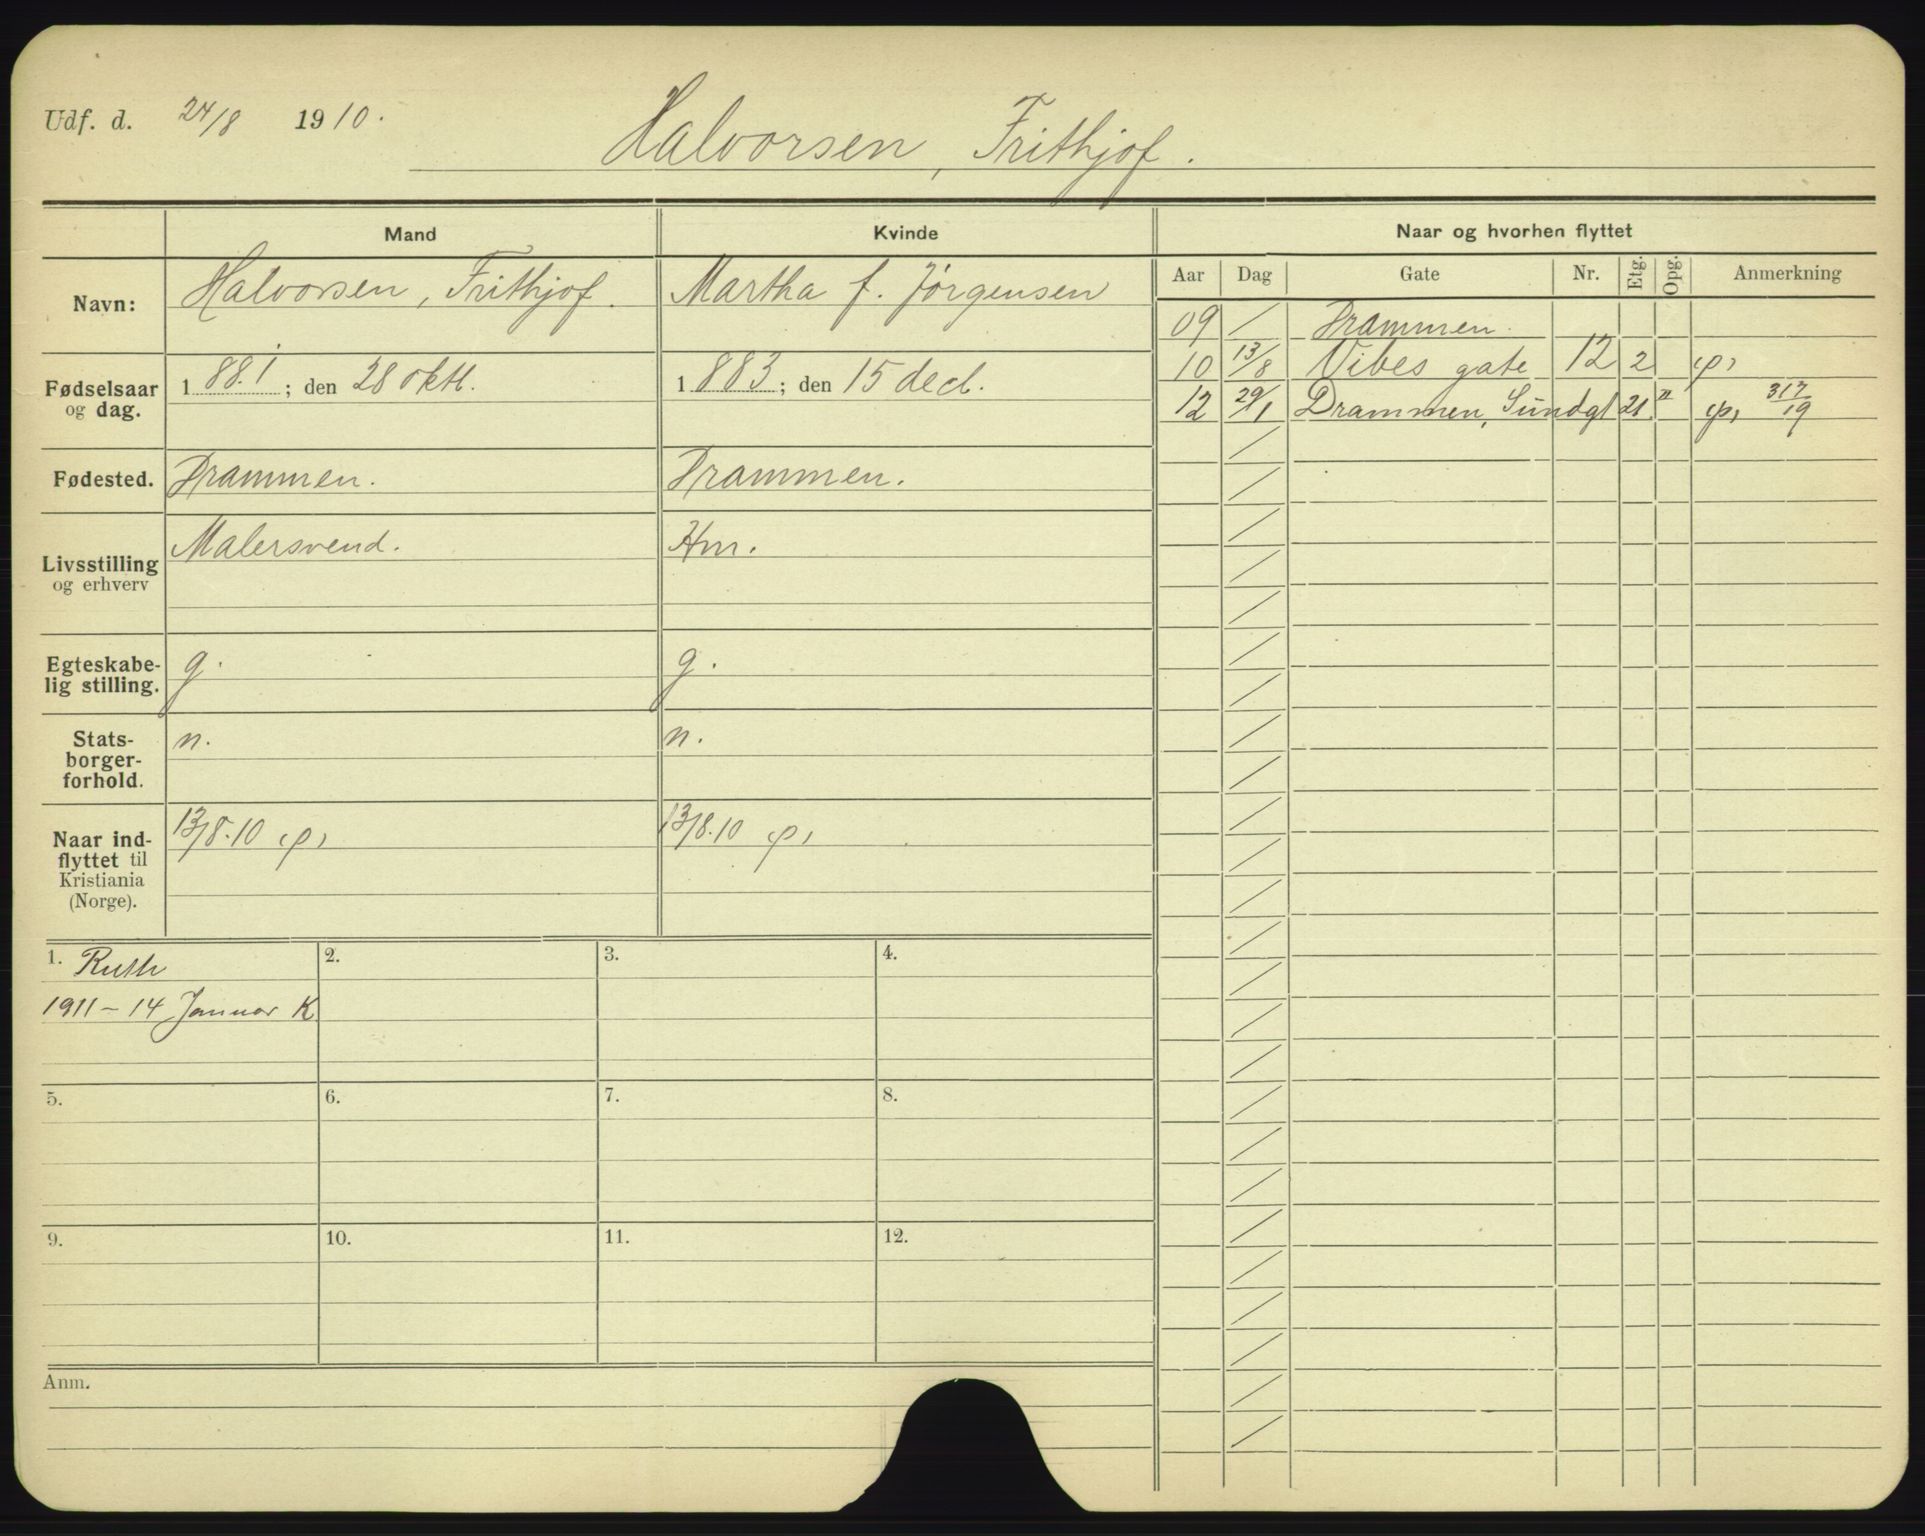 Udf. d. 24/8 1910.
Halvorsen, Frithjof.
Mand Kvinde Naar og hvorhen flyttet
Navn: Halvorsen, Frithjof. Martha f. Jørgensen
Fødselsaar og dag. 1881; den 28 oktl. 1883; den 15 decl.
Fødested. Drammen. Drammen.
Livsstilling og erhverv Malersvend. Hm.
Egteskabe-
lig stilling. g. g.
Stats-
borger-
forhold. n. n.
Naar ind-
flyttet til
Kristiania
(Norge). 13/8.10 13/8.10
1. Ruth
1911 – 14 Januar K.
2.
3.
4.
5.
6.
7.
8.
9.
10.
11.
12.
Anm.
Aar Dag Gate Nr. Etg. Opg. Anmerkning
09 / Drammen.
10 13/8 Vibes gate 12 2
12 29/1 Drammen, Sundgt 21 " 317/19